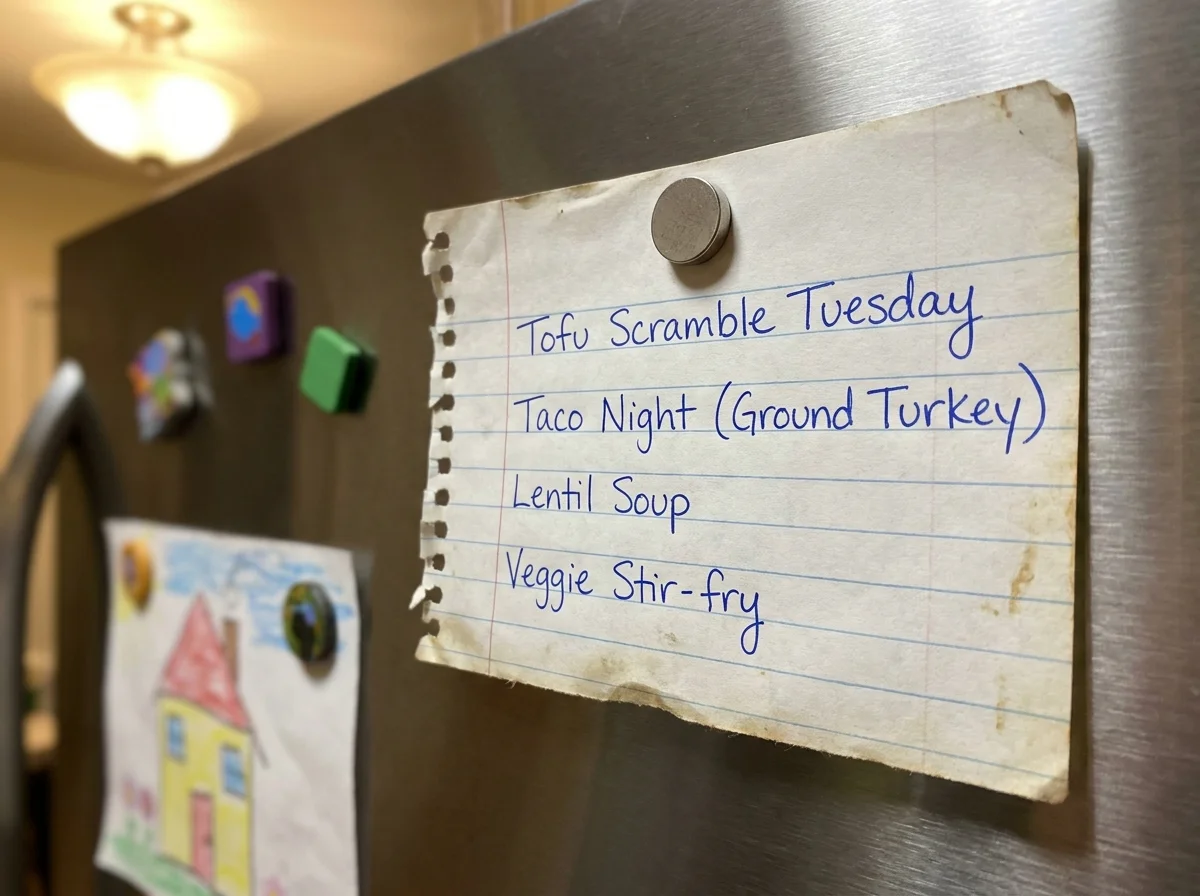 Tofu Scramble Tuesday
Taco Night (Ground Turkey)
Lentil Soup
Veggie Stir-fry